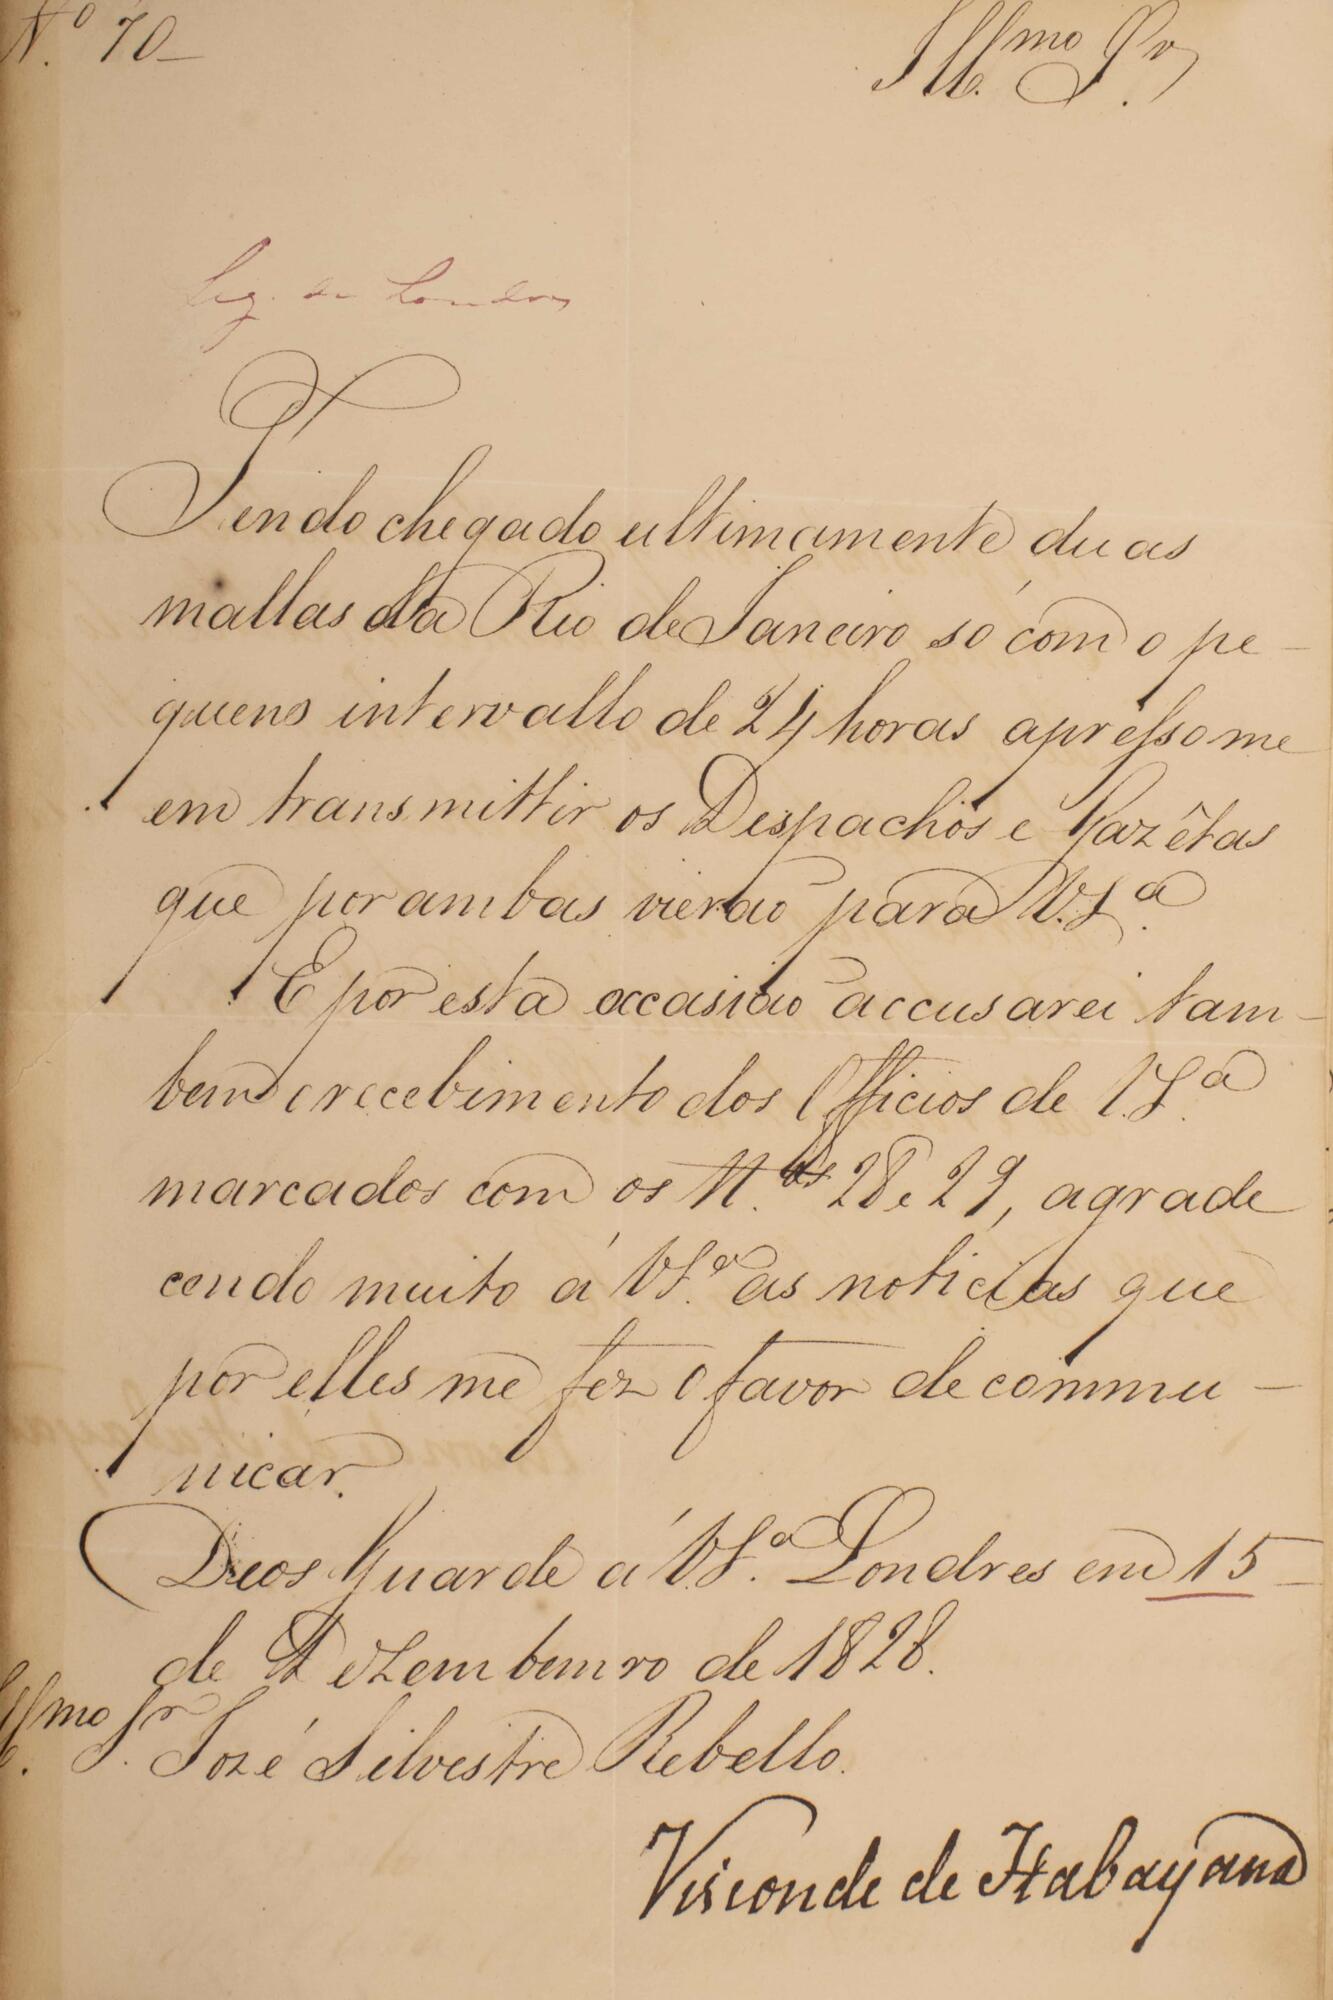 N.º 70
Ill.mo Sr.
Leg. de Londres
Tendo chegado ultimamente duas
mallas da Rio de Janeiro só com o pe-
queno intervallo de 24 horas apresso me
em transmittir os Despachos e Gazêtas
que por ambas vierão para V.S.ª
E por esta occasião accusarei tam-
bem o recebimento dos Officios de V.S.ª
marcados com os N.os 28 e 29, agrade
cendo muito á V.S.ª as noticias que
por elles me fez o favor de commu-
nicar.
Deos Guarde á V.S.ª Londres em 15-
de Dezembemro de 1828.
Ill.mo Sr. José Silvestre Rebello.
Visconde de Itabayana